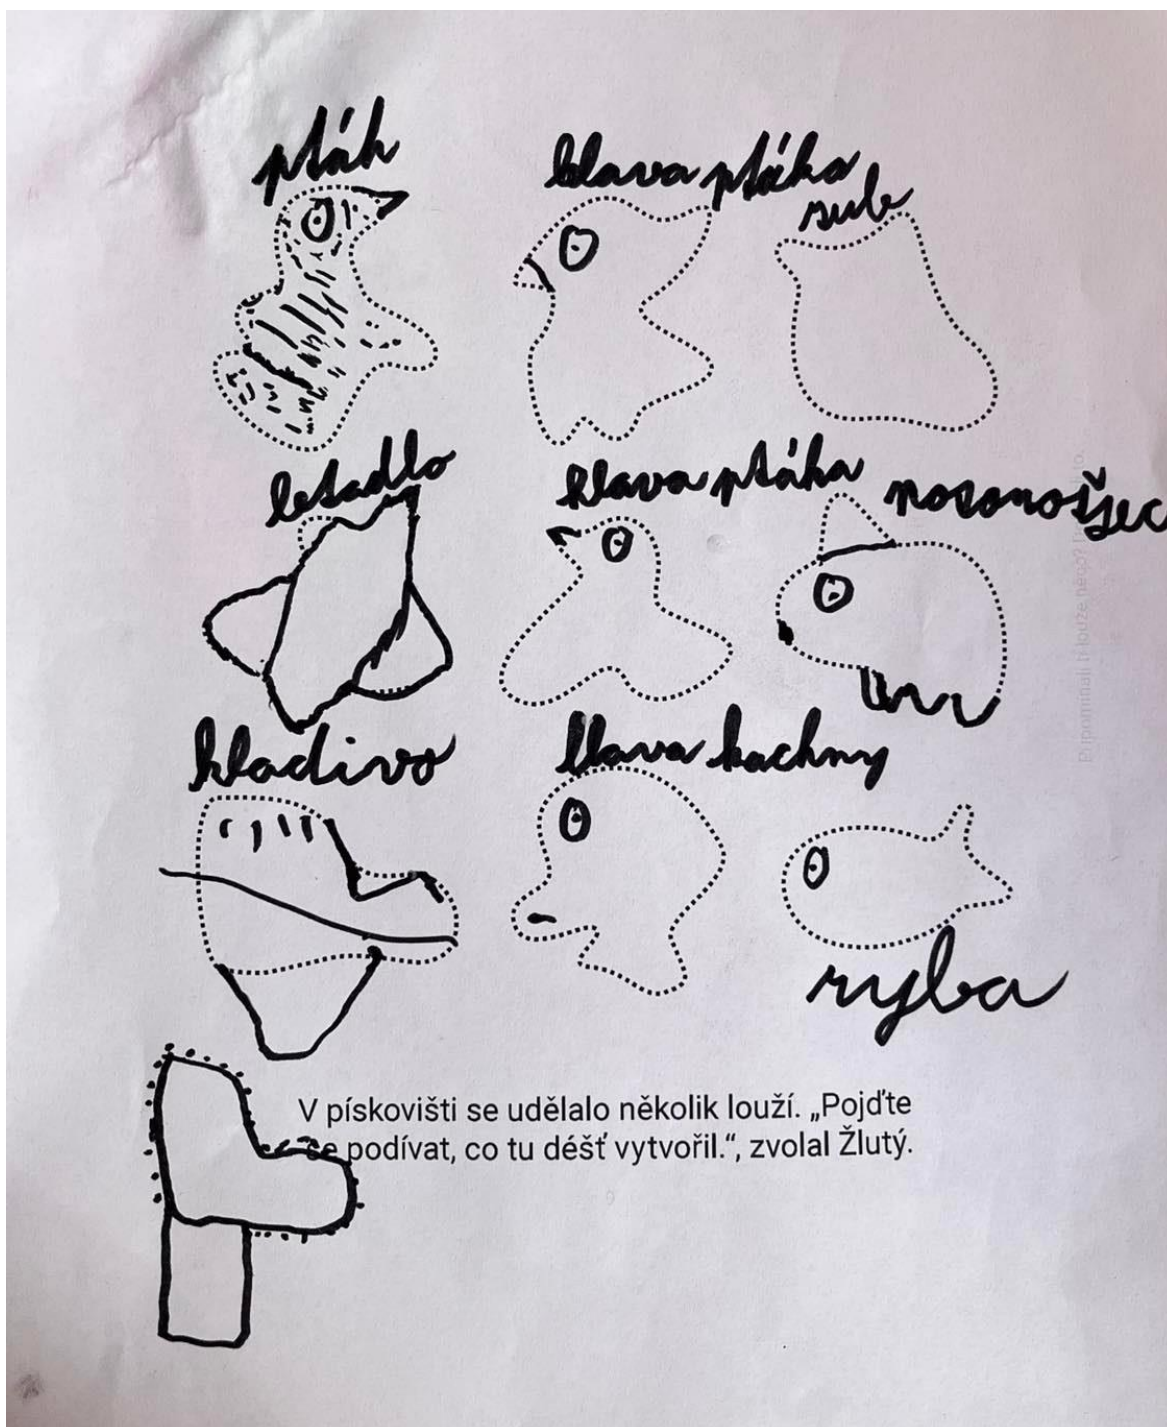 pták
hlava ptáka
zub
letadlo
hlava ptáka
nosorožec
kladivo
hlava kachny
ryba
V pískovišti se udělalo několik louží. „Pojďte
se podívat, co tu déšť vytvořil.“, zvolal Žlutý.